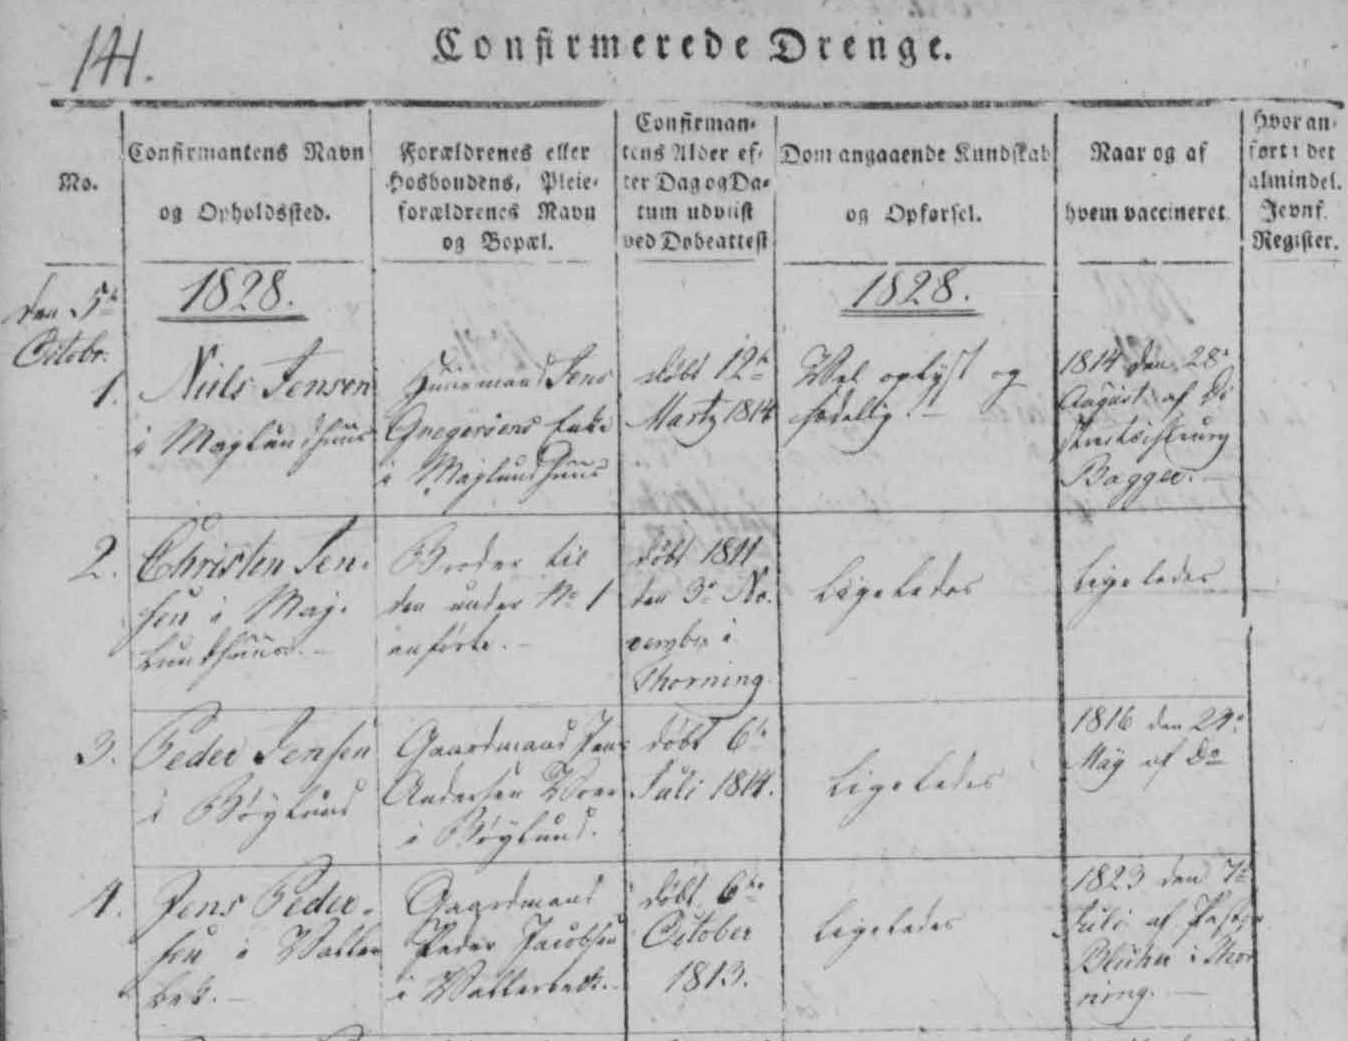 141.
Confirmerede Drenge.
No.
Confirmantens Navn
og Opholdssted.
Forældrenes eller
Hosbondens, Pleie-
forældrenes Navn
og Bopæl.
Confirman-
tens Alder ef-
ter Dag og Da-
tum udviist
ved Døbeattest
Dom angaaende Kundskab
og Opførsel.
Naar og af
hvem vaccineret.
Hvor an-
ført i det
almindel.
Jevnf.
Register.
den 5te
Octobr.
1828.
1828.
1.
Niels Jensen
i Maglundhuus
Huusmand Jens
Gregersens Enke
i Maglundhuus
døbt 12te
Marty 1814
Vel oplyst og
sædelig.
1814 den 28de
August af Di
strictschirurg
Bagger.
2.
Christen Jen-
sen i Mag-
lundhuus.
Broder til
den under No 1
anførte.
døbt 1811
den 3de No-
vember i
Thorning.
Ligeledes
Ligeledes
3.
Peder Jensen
i Bøglund
Gaardmand Jens
Andersen
i Bøglund.
døbt 6te
Juli 1814.
Ligeledes
1816 den 29de
May af Do
4.
Jens Peder-
sen i Vatter
bek.
Gaardmand
Peder Jacobsen
i Vatterbek.
døbt 6te
October
1813.
Ligeledes
1823 den 7de
Juli af Pastor
Blicher i Thor
ning.